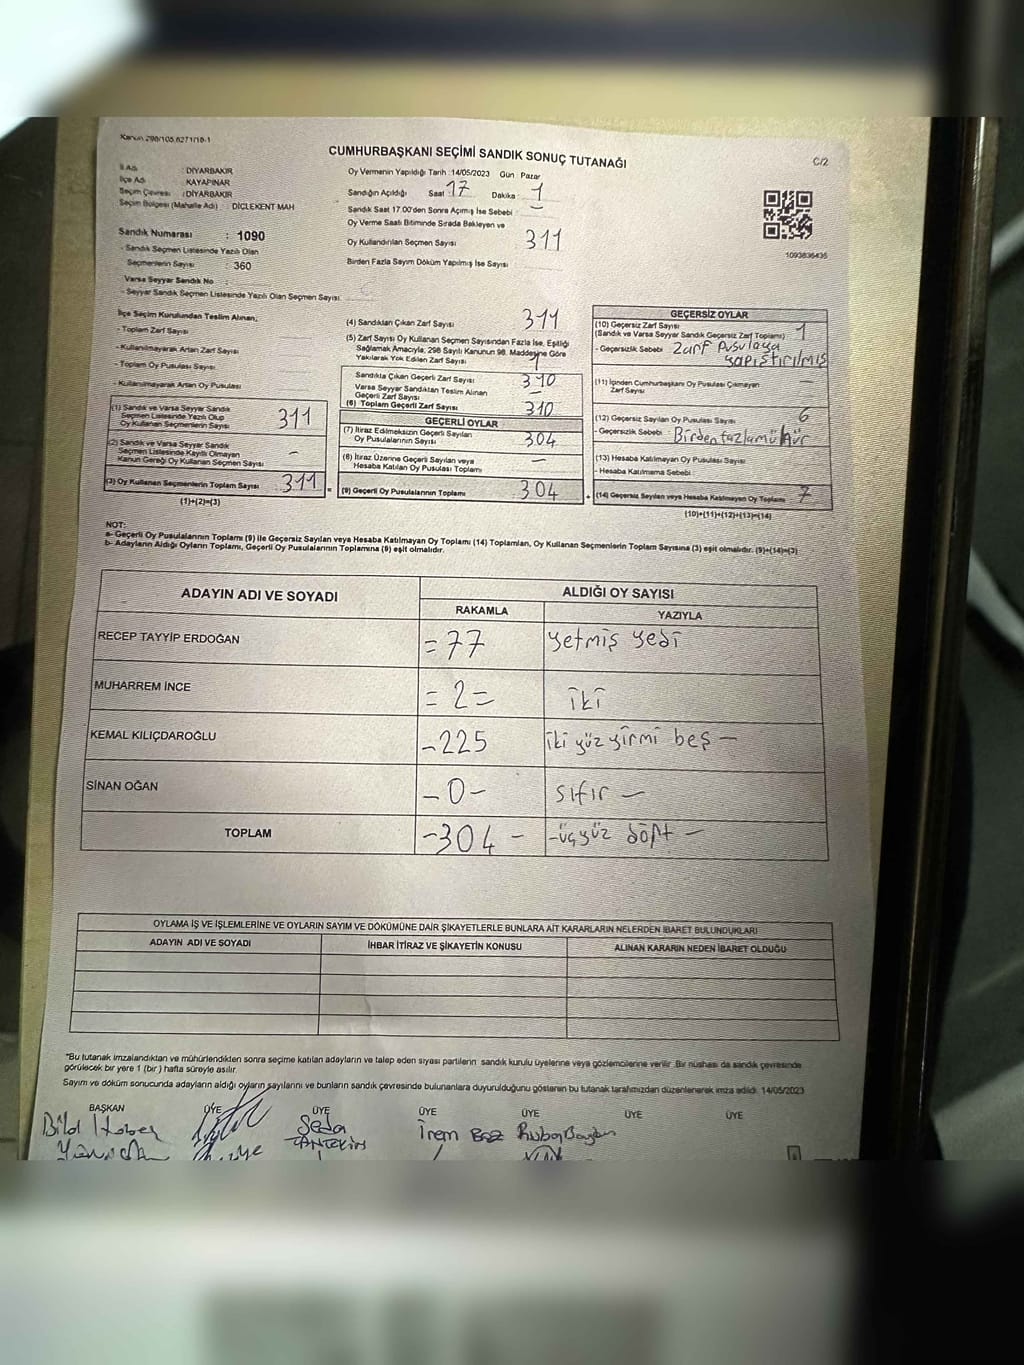 Kanun 298/105,6271/16-1
CUMHURBAŞKANI SEÇİMİ SANDIK SONUÇ TUTANAĞI
C/2
İl Adı : DİYARBAKIR
İlçe Adı : KAYAPINAR
Seçim Çevresi : DİYARBAKIR
Seçim Bölgesi (Mahalle Adı) : DİCLEKENT MAH
Sandık Numarası : 1090
- Sandık Seçmen Listesinde Yazılı Olan
Seçmenlerin Sayısı : 360
Varsa Seyyar Sandık No :
- Seyyar Sandık Seçmen Listesinde Yazılı Olan Seçmen Sayısı
Oy Vermenin Yapıldığı Tarih :14/05/2023 Gün : Pazar
Sandığın Açıldığı Saat 17 Dakika : 1
Sandık Saat 17.00'den Sonra Açımış İse Sebebi : —
Oy Verme Saati Bitiminde Sırada Bekleyen ve
Oy Kullandırılan Seçmen Sayısı 311
Birden Fazla Sayım Döküm Yapılmış İse Sayısı
1093836435
İlçe Seçim Kurulundan Teslim Alınan,
- Toplam Zarf Sayısı
- Kullanılmayarak Artan Zarf Sayısı
- Toplam Oy Pusulası Sayısı
- Kullanılmayarak Artan Oy Pusulası
(1) Sandık ve Varsa Seyyar Sandık
Seçmen Listesinde Yazılı Olup
Oy Kullanan Seçmenlerin Sayısı 311
(2) Sandık ve Varsa Seyyar Sandık
Seçmen Listesinde Kayıtlı Olmayan
Kanun Gereği Oy Kullanan Seçmen Sayısı -
(3) Oy Kullanan Seçmenlerin Toplam Sayısı 311 =
(1)+(2)=(3)
(4) Sandıktan Çıkan Zarf Sayısı 311
(5) Zarf Sayısı Oy Kullanan Seçmen Sayısından Fazla İse, Eşitliği
Sağlamak Amacıyla, 298 Sayılı Kanunun 98. Maddesine Göre
Yakılarak Yok Edilen Zarf Sayısı 1
Sandıkta Çıkan Geçerli Zarf Sayısı 310
Varsa Seyyar Sandıktan Teslim Alınan
Geçerli Zarf Sayısı —
(6) Toplam Geçerli Zarf Sayısı 310
GEÇERLİ OYLAR
(7) İtiraz Edilmeksizin Geçerli Sayılan
Oy Pusulalarının Sayısı 304
(8) İtiraz Üzerine Geçerli Sayılan veya
Hesaba Katılan Oy Pusulası Toplamı —
(9) Geçerli Oy Pusulalarının Toplamı 304 +
GEÇERSİZ OYLAR
(10) Geçersiz Zarf Sayısı
(Sandık ve Varsa Seyyar Sandık Geçersiz Zarf Toplamı) 1
- Geçersizlik Sebebi : Zarf Pusulaya
yapıştırılmış
(11) İçinden Cumhurbaşkanı Oy Pusulası Çıkmayan
Zarf Sayısı —
(12) Geçersiz Sayılan Oy Pusulası Sayısı 6
- Geçersizlik Sebebi : Birden fazla mühür
(13) Hesaba Katılmayan Oy Pusulası Sayısı
- Hesaba Katılmama Sebebi :
(14) Geçersiz Sayılan veya Hesaba Katılmayan Oy Toplamı 7
(10)+(11)+(12)+(13)=(14)
NOT:
a- Geçerli Oy Pusulalarının Toplamı (9) ile Geçersiz Sayılan veya Hesaba Katılmayan Oy Toplamı (14) Toplamları, Oy Kullanan Seçmenlerin Toplam Sayısına (3) eşit olmalıdır. (9)+(14)=(3)
b- Adayların Aldığı Oyların Toplamı, Geçerli Oy Pusulalarının Toplamına (9) eşit olmalıdır.
ADAYIN ADI VE SOYADI
ALDIĞI OY SAYISI
RAKAMLA YAZIYLA
RECEP TAYYİP ERDOĞAN = 77 yetmiş yedi
MUHARREM İNCE = 2 = iki
KEMAL KILIÇDAROĞLU - 225 iki yüz yirmi beş —
SİNAN OĞAN - 0 - sıfır —
TOPLAM - 304 - - üçyüz dört —
OYLAMA İŞ VE İŞLEMLERİNE VE OYLARIN SAYIM VE DÖKÜMÜNE DAİR ŞİKAYETLERLE BUNLARA AİT KARARLARIN NELERDEN İBARET BULUNDUKLARI
ADAYIN ADI VE SOYADI İHBAR İTİRAZ VE ŞİKAYETİN KONUSU ALINAN KARARIN NEDEN İBARET OLDUĞU
"Bu tutanak imzalandıktan ve mühürlendikten sonra seçime katılan adayların ve talep eden siyasi partilerin sandık kurulu üyelerine veya gözlemcilerine verilir .Bir nüshası da sandık çevresinde
görülecek bir yere 1 (bir ) hafta süreyle asılır.
Sayım ve döküm sonucunda adayların aldığı oyların sayılarını ve bunların sandık çevresinde bulunanlara duyurulduğunu gösteren bu tutanak tarafımızdan düzenlenerek imza edildi. 14/05/2023
BAŞKAN ÜYE ÜYE ÜYE ÜYE ÜYE ÜYE
Seda
İrem